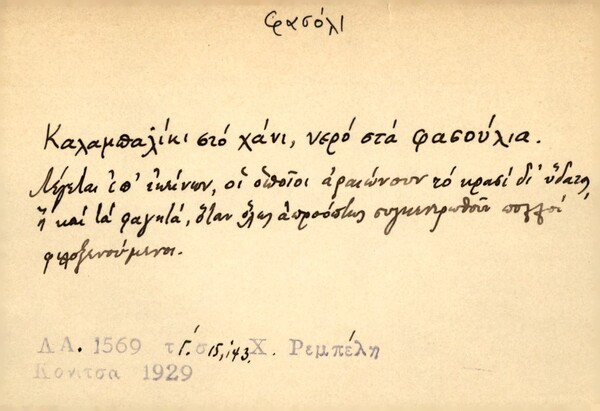 φασόλι
Καλαμπαλίκι στό χάνι, νερό στά φασούλια.
Λέγεται ἐπ' ἐκείνων, οἱ ὁποῖοι ἀραιώνουν τό κρασί δι' ὕδατος,
ἤ καί τά φαγητά, ὅταν ὅλως ἀπροόπτως συγκεντρωθοῦν πολλοί
φιλοξενούμενοι.
Λ.Α. 1569 Γ. 15, 143. Χ. Ρεμπέλη
Κόνιτσα 1929